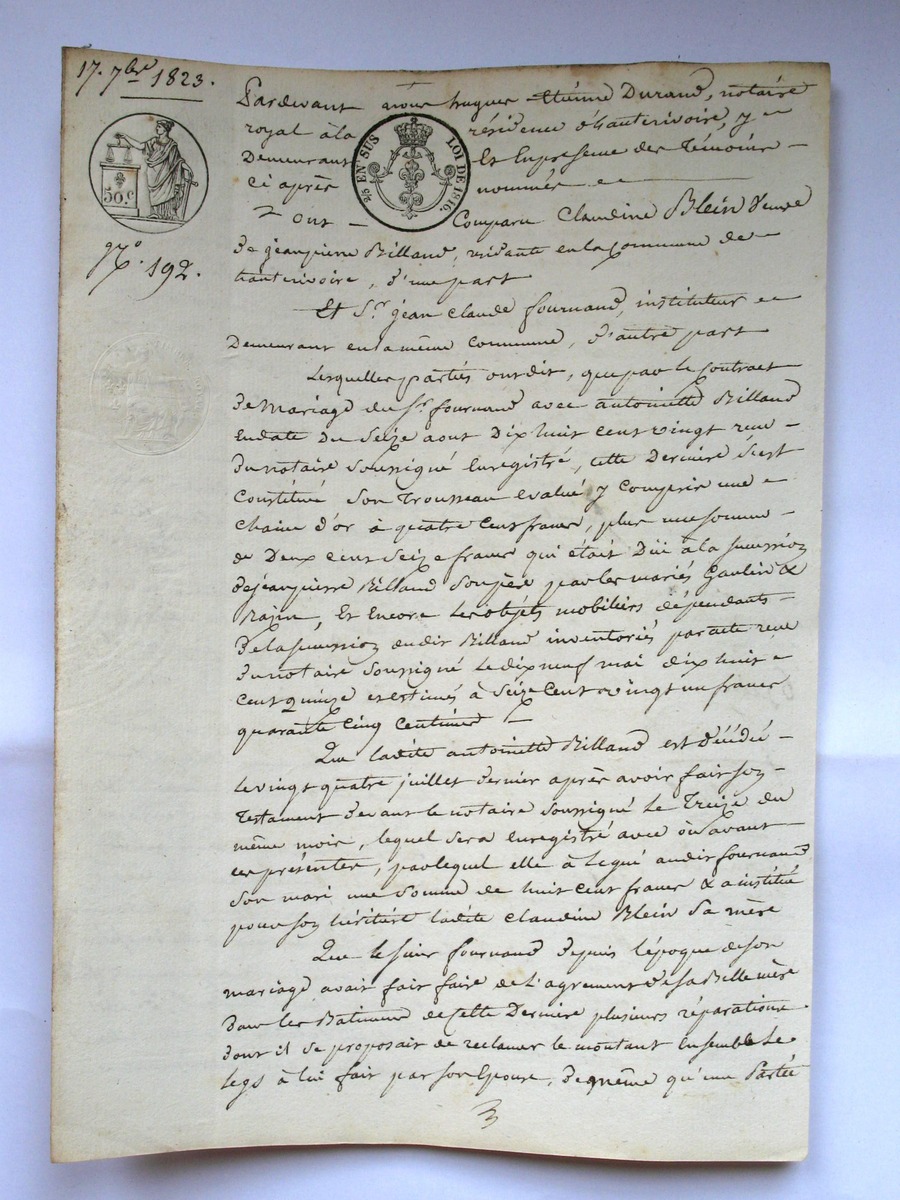 17. 7bre 1823.
50.c
No. 192.
25 EN SUS LOI DE 1816.
Pardevant nous hugues Etienne Durand, notaire
royal à la résidence d'hauterivoire, y
Demeurant Et En presence des Témoins
ci après nommés
Ont Comparu Claudine Blein Veuve
De jean pierre Rilland, residante en la Commune de
hauterivoire, D'une part
Et Sr. jean Claude fournand, instituteur
Demeurant en la même Commune, D'autre part
Lesquelles parties ont dit, que par le Contract
De Mariage du Sr. fournand avec antoinette Rilland
En date Du Seize aout Dix huit cent vingt recu
Du notaire Soussigné Enregistré, cette Derniere s'est
Constitué Son Trousseau evalué y Compris une
Chaine d'or à quatre Cent francs, plus une Somme
de Deux cent Seize francs qui était Düe à la succession
De jean pierre Rilland Son père par les mariés &
Et Encore les objets mobiliers dépendants
De la succession dudit Rilland inventoriés par acte recu
Du notaire Soussigné le dix neuf mai dix huit
Cent quinze et estimés à Seize Cent vingt un francs
quarante Cinq Centimes
Que ladite antoinette Rilland est Décédée
le vingt quatre juillet dernier après avoir fait son
Testament Devant le notaire Soussigné le Treize du
même mois, lequel sera Enregistré avec ou avant
ces présentes, par lequel elle à Legué audit fournand
Son mari une Somme de huit cent francs & a institué
pour son héritière ladite Claudine Blein Sa mère
Que le sieur fournand Depuis l'époque de son
mariage avait fait faire de l'agrement de sa Belle mère
Dans les Batiments de Cette Derniere plusieurs réparations
dont il se proposait de reclamer le montant Ensemble le
legs à lui fait par son Epouse, De même qu'une Partie